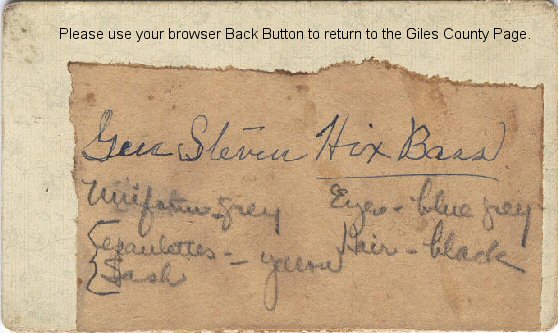 Please use your browser Back Button to return to the Giles County Page.
Gen Steven Hix Bass
Uniform - grey Eyes - blue grey
epaulettes - Hair - black
Sash - yellow